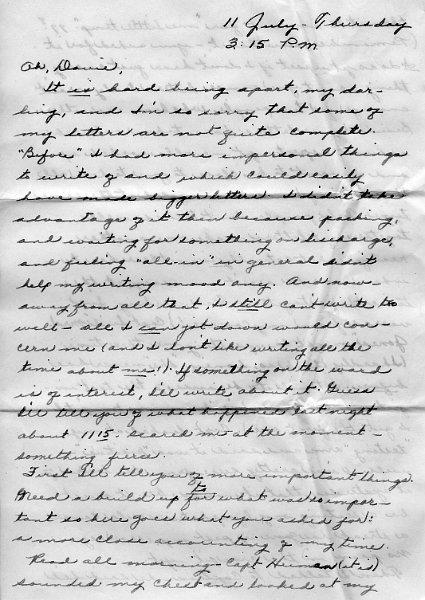 11 July - Thursday
3:15 P.M
Oh, Davie,
It is hard being apart, my dar-
ling, and I'm so sorry that some of
my letters are not quite complete.
"Before" I had more impersonal things
to write of and which could easily
have made bigger letters. I didn't take
advantage of it then because packing,
and waiting for something on discharge,
and feeling "all-in" in general didn't
help my writing mood any. And now-
away from all that, I still can't write to
well - all I can jot down would con-
cern me (and I don't like writing all the
time about me!) If something on the ward
is of interest, I'll write about it. Guess
I'll tell you of what happened last night
about 1115. scared me at the moment -
something fierce.
First I'll tell you of more important things.
Need a build up to for what was so impor-
tant so here goes what you asked for:
a more close accounting of my time.
Read all morning - Capt (it is)
sounded my chest and looked at my